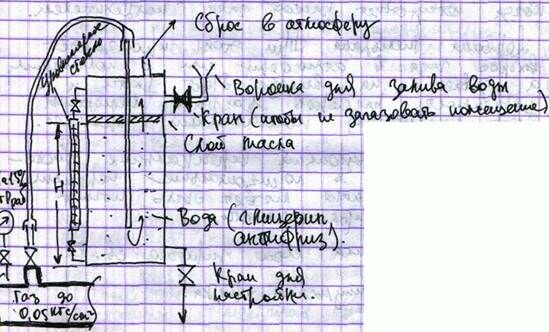 Сброс в атмосферу
Уровнемерное
стекло
Воронка для залива воды
Кран (чтобы не загазовать помещение)
Слой масла
H
Вода (глицерин,
антифриз).
Кран для
настройки.
Газ до
0,05 кгс/см²